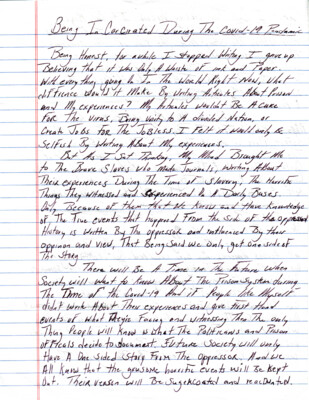 Being In Carcerated During The Covid-19 Pandemic
Being Honest, for awhile I stopped Writing I gave up
Believing that it was Only A Waste of ink and Paper.
With everything going on In The World Right Now, what
difference would it Make By Writing Articles About Prison
and My experiences? My Articles Wouldnt Be A Cure
For The Virus, Bring Unity to A divided Nation, or
Create Jobs for The Jobless. I Felt it would only be
Selfish By Writing About My experiences.
But As I Sat Thinking, My Mind Brought Me
to The Brave Slaves who Made Journals, Writing About
Their experiences During The Time of Slavery, The Horrific
Things They witnessed and experienced on A Daily Bases.
Only Because of Them that We Know and Have Knowledge
of The True events that happened From the Side of the oppressed
History is Written By The oppressor and influenced By their
oppinion and view, That Being Said we Only get One side of
The Story.
There will Be A Time in The Future When
Society will want to Know About The Prison System during
The Time of the Covid-19 And if People like Myself
didnt Write About Their experiences and give First Hand
events of what People Facing and witnessing Then The only
Thing People will Know is What The Politicians and Prison
officals decide to document. Future Society will only
Have A One Sided Story From The Oppressor. And we
All Know that the gruesome horrific events will Be Kept
Out. Their version will Be Sugarcoated and